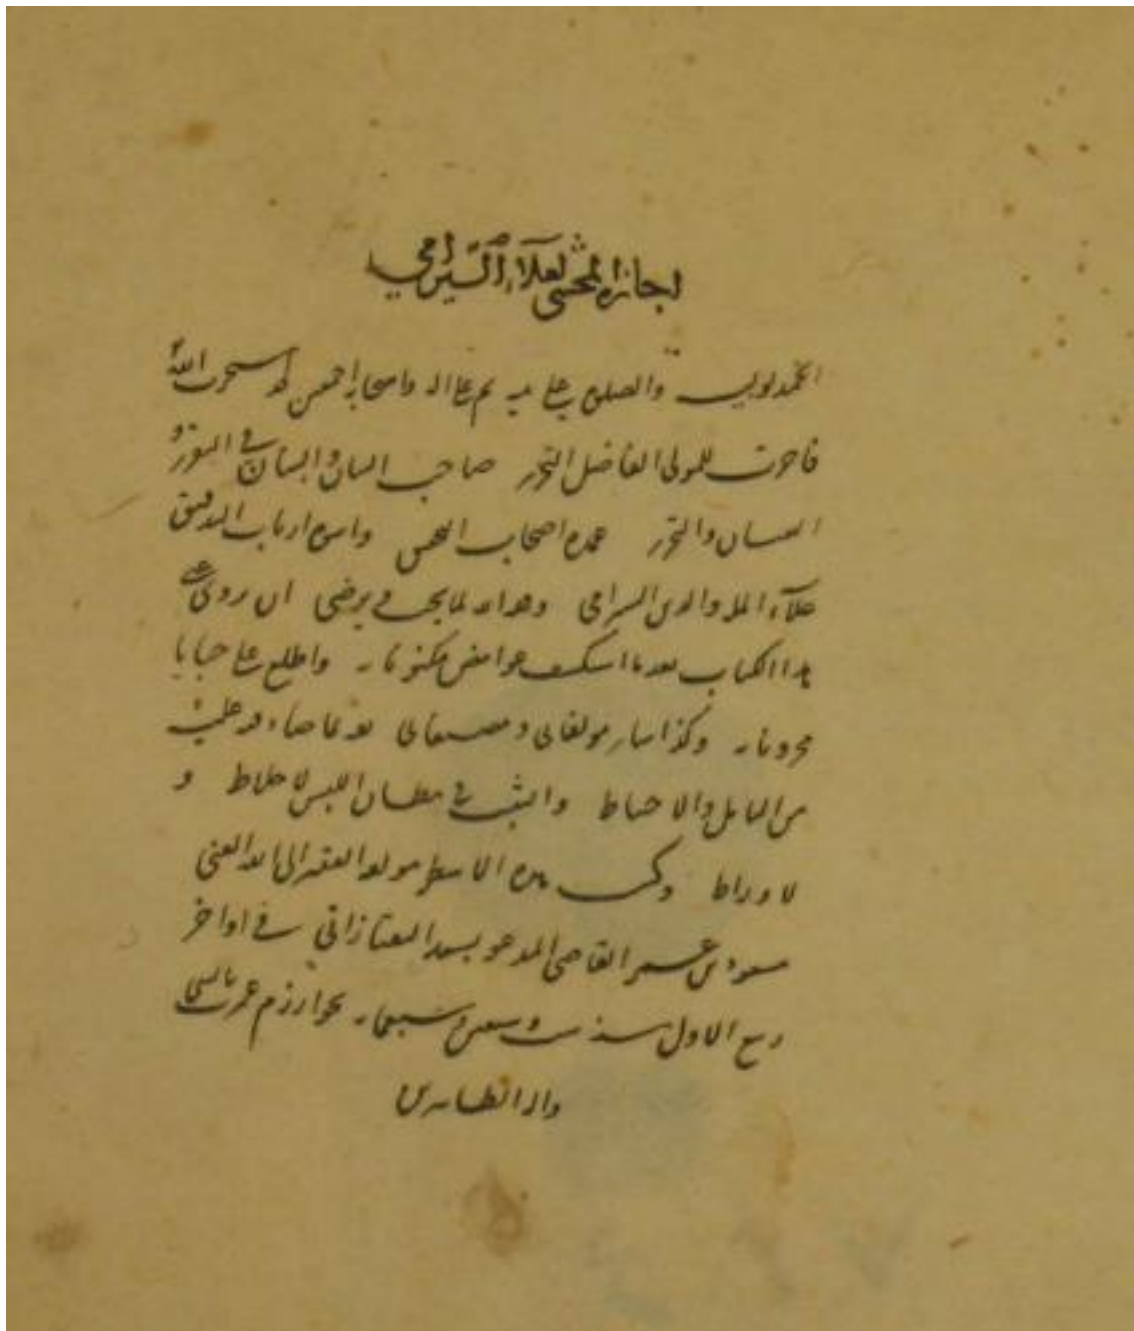 اجازة المحشى لعلاء السيرامي
الحمد لوليه والصلوة على نبيه محمد وعلى اله واصحابه اجمعين استخرت الله
فاجزت للمولى الفاضل النحرير صاحب البيان والبنان في التقرير و
اللسان والتحرير عمدة اصحاب التحقيق واسوة ارباب التدقيق
علاء الملة والدين السيرامي ان يروي عني
هذا الكتاب بعدما استكشف غوامض مكنوناته واطلع على خبايا
مخزوناته وكذا سائر مولفاتي ومصنفاتي
من التامل والاحتياط والتثبت في مظان اللبس
وكتب هذه الاسطر مولفه الفقير الى الله الغني
مسعود بن عمر القاضي المدعو بسعد التفتازاني في اواخر
ربيع الاول سنة وسبعين وسبعمايه بخوارزم عمرت بالنبي
واله الطاهرين